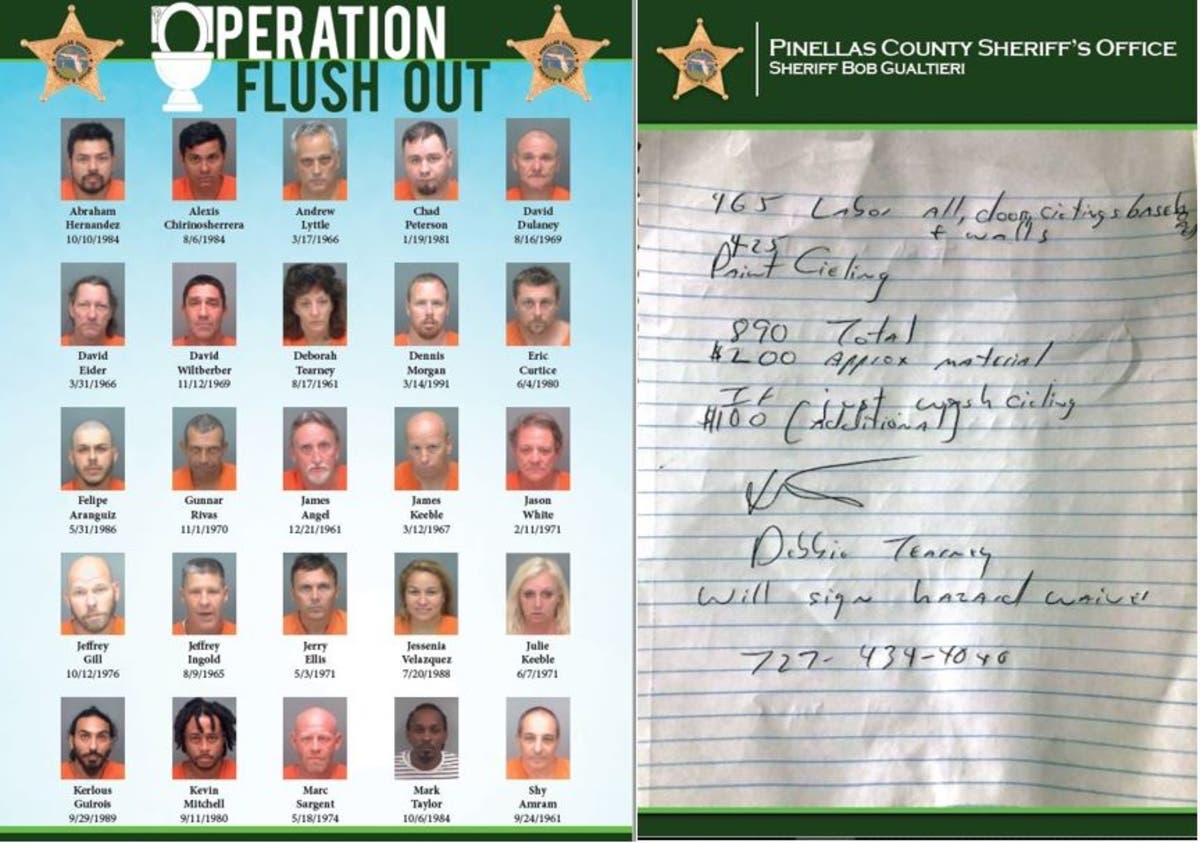 OPERATION
FLUSH OUT
Abraham
Hernandez
10/10/1984
Alexis
Chirinosherrera
8/6/1984
Andrew
Lyttle
3/17/1966
Chad
Peterson
1/19/1981
David
Dulaney
8/16/1969
David
Eider
3/31/1966
David
Wiltberber
11/12/1969
Deborah
Tearney
8/17/1961
Dennis
Morgan
3/14/1991
Eric
Curtice
6/4/1980
Felipe
Aranguiz
5/31/1986
Gunnar
Rivas
11/1/1970
James
Angel
12/21/1961
James
Keeble
3/12/1967
Jason
White
2/11/1971
Jeffrey
Gill
10/12/1976
Jeffrey
Ingold
8/9/1965
Jerry
Ellis
5/3/1971
Jessenia
Velazquez
7/20/1988
Julie
Keeble
6/7/1971
Kerlous
Guirois
9/29/1989
Kevin
Mitchell
9/11/1980
Marc
Sargent
5/18/1974
Mark
Taylor
10/6/1984
Shy
Amram
9/24/1961
PINELLAS COUNTY SHERIFF'S OFFICE
SHERIFF BOB GUALTIERI
465 Labor All, doors, cielings
+ walls
425
Paint Cieling
890 Total
$200 Approx material
If just wash cieling
$100 (Additional)
Debbie Tearney
Will sign hazard waiver
727-434-4040